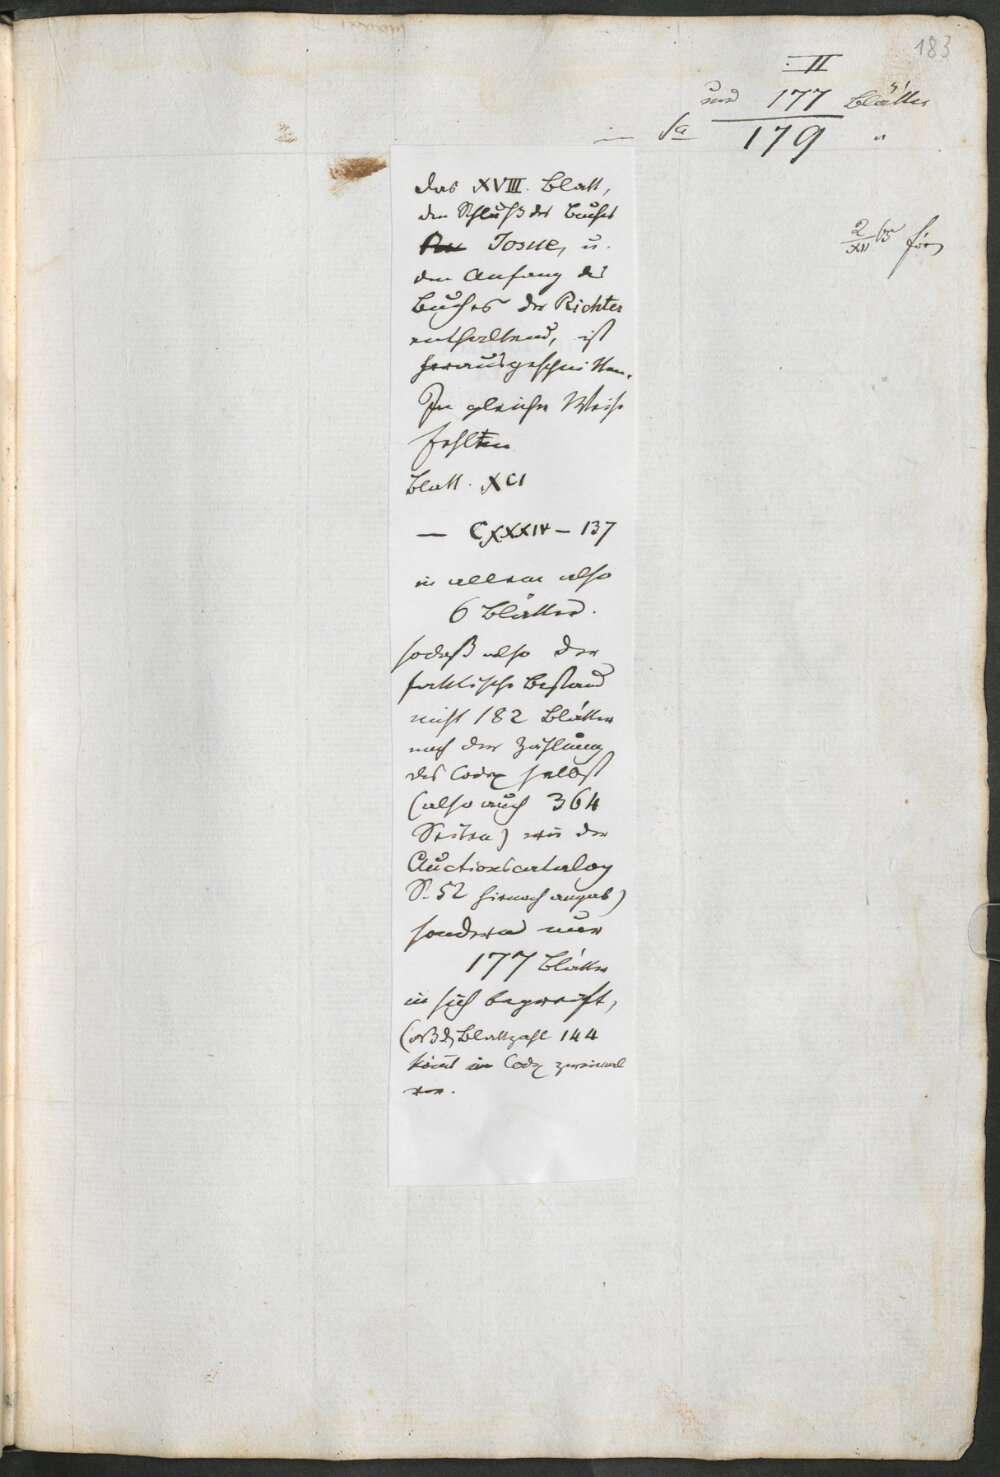 183
II
und 177 Blätter
Sa 179 "
2/XII 65 för
Das XVIII. Blatt,
den Schluß des Buches
Josue, u.
den Anfang des
Buches der Richter
enthaltend, ist
herausgeschnitten.
In gleicher Weise
fehlen
Blatt. XCI
— CXXXIV – 137
in allem also
6 Blätter.
sodaß also der
faktische Bestand
nicht 182 Blätter
nach der Zählung
des Codex selbst
(also auch 364
Seiten) wie der
Auctionscatalog
S. 52 hienach angab)
sondern nur
177 Blätter
in sich begreift,
Blattzahl 144
kömt im Codex zweimal
vor.